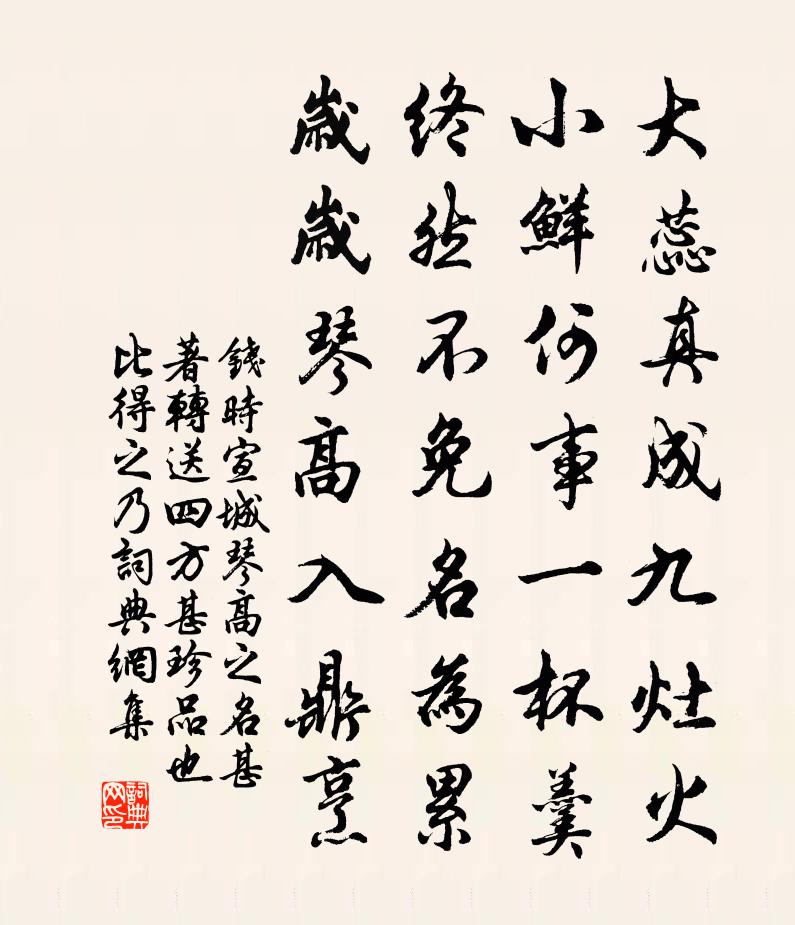 大蕊真成九灶火
小鮮何事一杯羹
终然不免名為累
歲歲琴高入鼎烹
錢時宣城琴高之名甚
著轉送四方甚珍品也
比得之乃詞典網集
詞典
网印